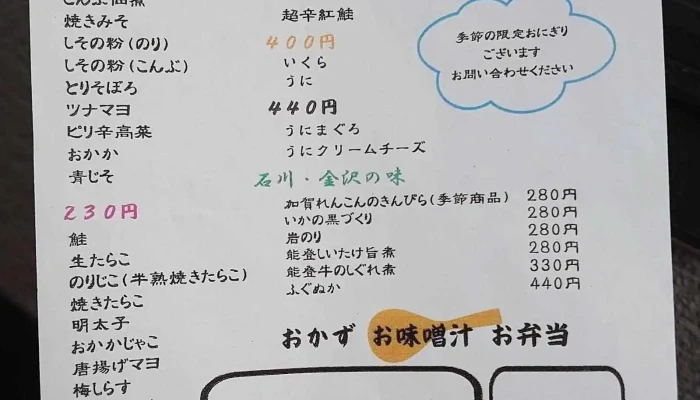 焼きみそ
しその粉(のり)
しその粉(こんぶ)
とりそぼろ
ツナマヨ
ピリ辛高菜
おかか
青じそ
230円
鮭
生たらこ
のりじこ(半熟焼きたらこ)
焼きたらこ
明太子
おかかじゃこ
唐揚げマヨ
梅しらす
超辛紅鮭
400円
いくら
うに
440円
うにまぐろ
うにクリームチーズ
季節の限定おにぎり
ございます
お問い合わせください
石川・金沢の味
加賀れんこんのきんぴら(季節商品) 280円
いかの黒づくり 280円
岩のり 280円
能登しいたけ旨煮 280円
能登牛のしぐれ煮 330円
ふぐぬか 440円
おかず お味噌汁 お弁当